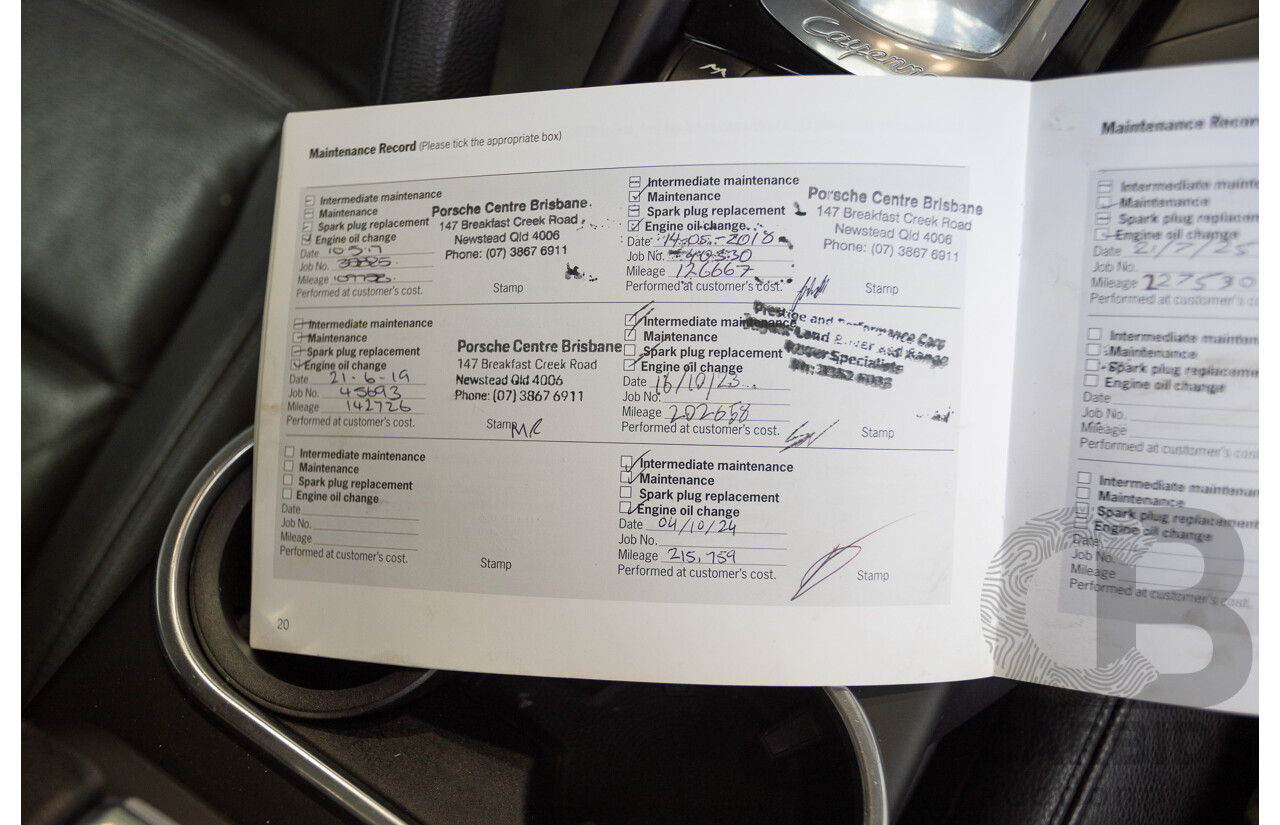 Cayenne
Maintenance Record (Please tick the appropriate box)
Intermediate maintenance
Maintenance
Spark plug replacement
Engine oil change
Date 10.5.17
Job No.
Mileage
Performed at customer's cost.
Porsche Centre Brisbane.
147 Breakfast Creek Road
Newstead Qld 4006
Phone: (07) 3867 6911
Stamp
Intermediate maintenance
Maintenance
Spark plug replacement
Engine oil change
Date 14-05-2018
Job No. 40330
Mileage 126667
Performed at customer's cost.
Porsche Centre Brisbane
147 Breakfast Creek Road
Newstead Qld 4006
Phone: (07) 3867 6911
Stamp
Intermediate maintenance
Maintenance
Spark plug replacement
Engine oil change
Date 21-6-19
Job No. 45693
Mileage 142726
Performed at customer's cost.
Porsche Centre Brisbane
147 Breakfast Creek Road
Newstead Qld 4006
Phone: (07) 3867 6911
Stamp
MR
Intermediate maintenance
Maintenance
Spark plug replacement
Engine oil change
Date 16/10/23
Job No.
Mileage 202658
Performed at customer's cost.
Prestige and Performance Cars
Land Rover and Range
Rover Specialists
Stamp
Intermediate maintenance
Maintenance
Spark plug replacement
Engine oil change
Date
Job No.
Mileage
Performed at customer's cost.
Stamp
Intermediate maintenance
Maintenance
Spark plug replacement
Engine oil change
Date 04/10/24
Job No.
Mileage 215,759
Performed at customer's cost.
Stamp
20
Maintenance Recor
Intermediate maint
Maintenance
Spark plug replacem
Engine oil change
Date 21/7/25
Job No.
Mileage 227530
Performed at customer's cos
Intermediate mainten
Maintenance
Spark plug replaceme
Engine oil change
Date
Job No.
Mileage
Performed at customer's cos
Intermediate maintenan
Maintenance
Spark plug replacement
Engine oil change
Date
Job No.
Mileage
Performed at customer's cost.
CB